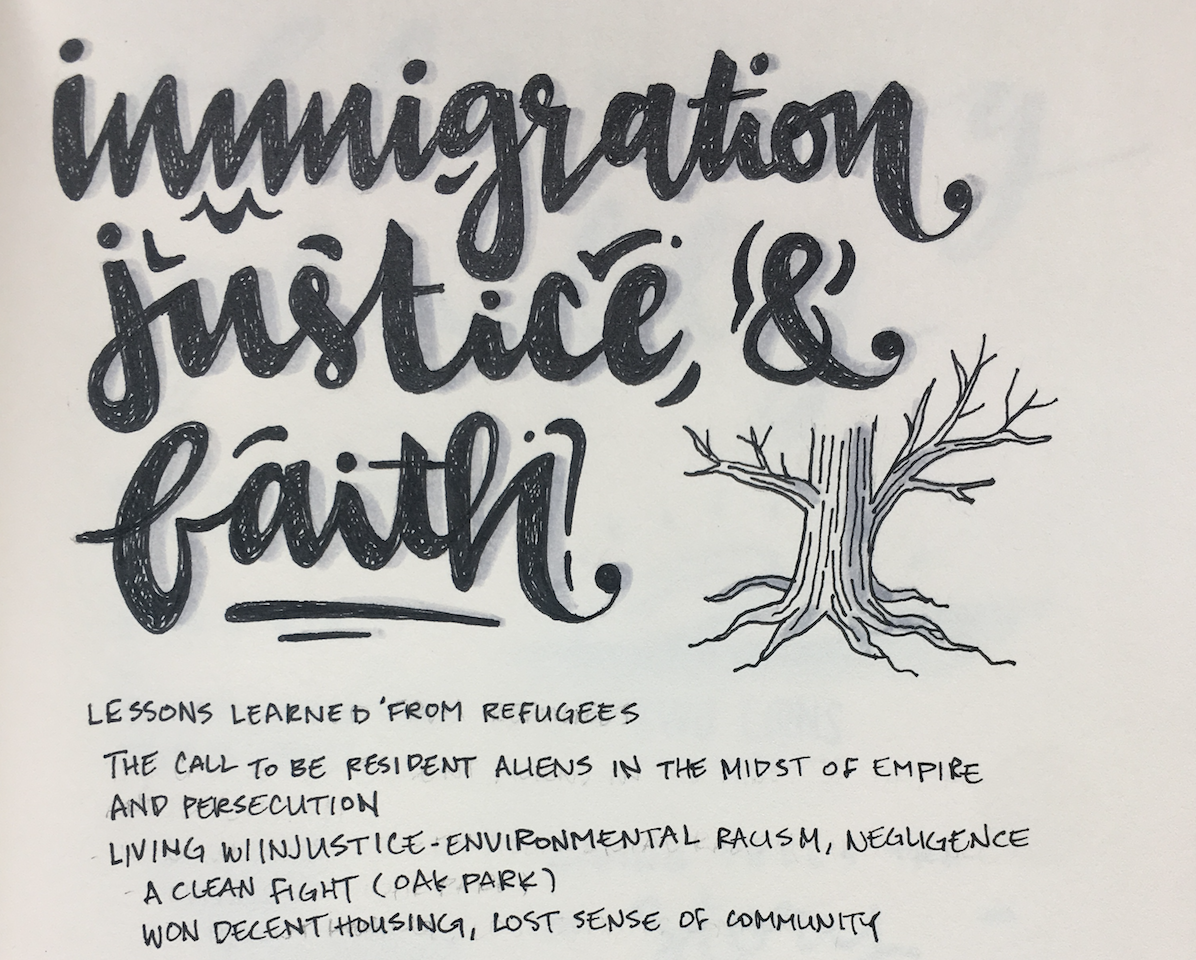 immigration
justice, &
faith
LESSONS LEARNED FROM REFUGEES
THE CALL TO BE RESIDENT ALIENS IN THE MIDST OF EMPIRE
AND PERSECUTION
LIVING W/INJUSTICE - ENVIRONMENTAL RACISM, NEGLIGENCE
A CLEAN FIGHT (OAK PARK)
WON DECENT HOUSING, LOST SENSE OF COMMUNITY